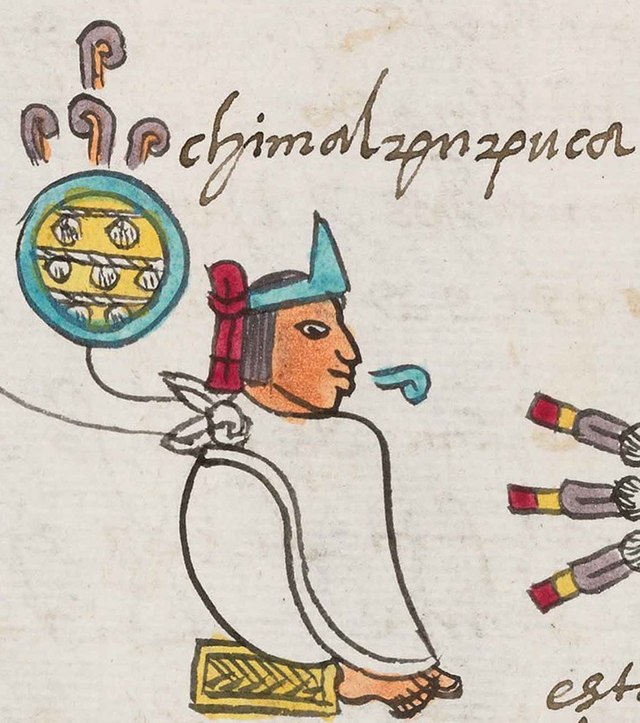 chimalpupuca
est